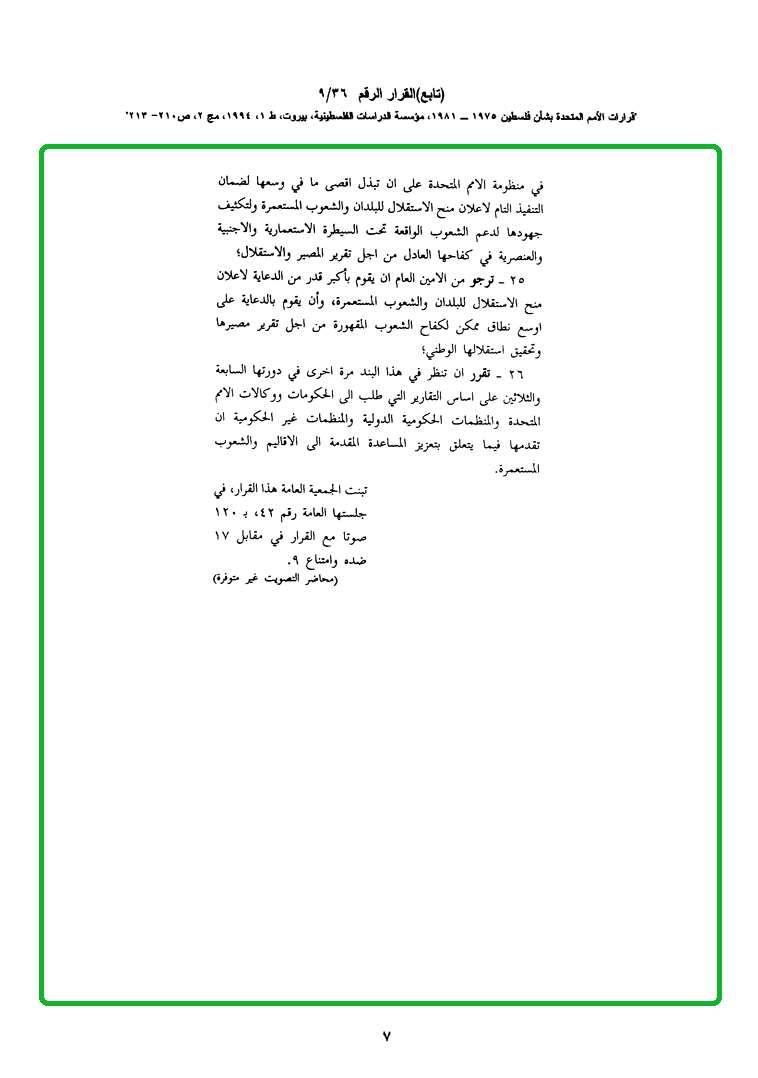 (تابع)القرار الرقم ٩/٣٦
"قرارات الأمم المتحدة بشأن فلسطين ١٩٧٥ – ١٩٨١، مؤسسة الدراسات الفلسطينية، بيروت، ط ١، ١٩٩٤، مج ٢، ص٢١٠- ٢١٣"
في منظومة الامم المتحدة على ان تبذل اقصى ما في وسعها لضمان
التنفيذ التام لاعلان منح الاستقلال للبلدان والشعوب المستعمرة ولتكثيف
جهودها لدعم الشعوب الواقعة تحت السيطرة الاستعمارية والاجنبية
والعنصرية في كفاحها العادل من اجل تقرير المصير والاستقلال؛
٢٥ ـ ترجو من الامين العام ان يقوم بأكبر قدر من الدعاية لاعلان
منح الاستقلال للبلدان والشعوب المستعمرة، وأن يقوم بالدعاية على
اوسع نطاق ممكن لكفاح الشعوب المقهورة من اجل تقرير مصيرها
وتحقيق استقلالها الوطني؛
٢٦ ـ تقرر ان تنظر في هذا البند مرة اخرى في دورتها السابعة
والثلاثين على اساس التقارير التي طلب الى الحكومات ووكالات الامم
المتحدة والمنظمات الحكومية الدولية والمنظمات غير الحكومية ان
تقدمها فيما يتعلق بتعزيز المساعدة المقدمة الى الاقاليم والشعوب
المستعمرة.
تبنت الجمعية العامة هذا القرار، في
جلستها العامة رقم ٤٢، بـ ١٢٠
صوتا مع القرار في مقابل ١٧
ضده وامتناع ٩.
(محاضر التصويت غير متوفرة)
٧